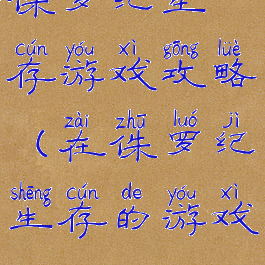 侏罗纪生
cún yóu xì gōng luè
存游戏攻略
zài zhū luó jì
（在侏罗纪
shēng cún de yóu xì
生存的游戏